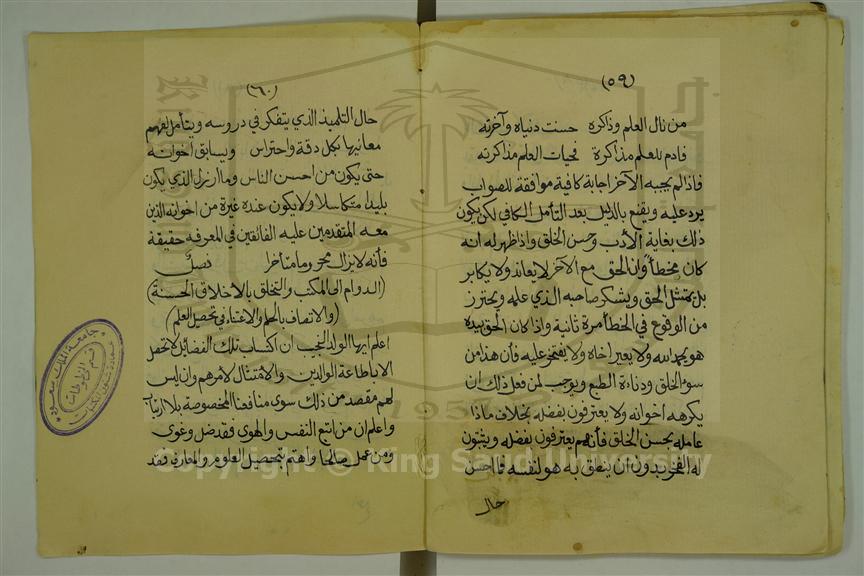 (٥٩)
من نال العلم وذاكره حسنت دنياه وآخرته
فادم للعلم مذاكرة فحيات العلم مذاكرته
فاذا لم يجبه الآخر اجابة كافية موافقة للصواب
يرد عليه ويقنع بالدليل بعد التأمل الكافي لكن يكون
ذلك بغاية الأدب وحسن الخلق واذا ظهر له انه
كان مخطأ وان الحق مع الآخر لا يعاند ولا يكابر
بل يمتثل الحق ويشكر صاحبه الذي عليه ويحترز
من الوقوع في الخطأ مرة ثانية واذا كان الحق بيده
هو يحمد الله ولا يعير اخاه ولا يفتخر عليه فأن هذا من
سوء الخلق ودناءة الطبع ويوجب لمن فعل ذلك ان
يكرهه اخوانه ولا يعترفون بفضله بخلاف ماذا
عامله بحسن الخلق فأنهم يعترفون بفضله ويثنون
له الفخر بدون ان ينطق به هو لنفسه فما احسن
حال
(٦٠)
حال التلميذ الذي يتفكر في دروسه ويتأمل لفهم
معانيها بكل دقة واحتراس ويسابق اخوانه
حتى يكون من احسن الناس وما ارزل الذي يكون
بليدا متكاسلا ولا يكون عنده غيرة من اخوانه الذين
معه المتقدمين عليه الفائقين في المعرفه حقيقة
فأنه لا يزال محروما متأخرا فصل
(الدوام الى المكتب والتخلق بالاخلاق الحسنة)
(والاتصاف بالحلم والاعتناء في تحصيل العلم)
اعلم ايها الولد النجيب ان اكتساب تلك الفضائل لا تحصل
الا باطاعة الوالدين والامتثال لأمرهم وان ليس
لهم مقصد من ذلك سوى منافعنا المخصوصة بلا ارتياب
واعلم ان من اتبع النفس والهوى فقد ضل وغوى
ومن عمل صالحا واهتم بتحصيل العلوم والمعارف فقد
جامعة الملك سعود
قسم المخطوطات
1957
Copyright © King Saud University